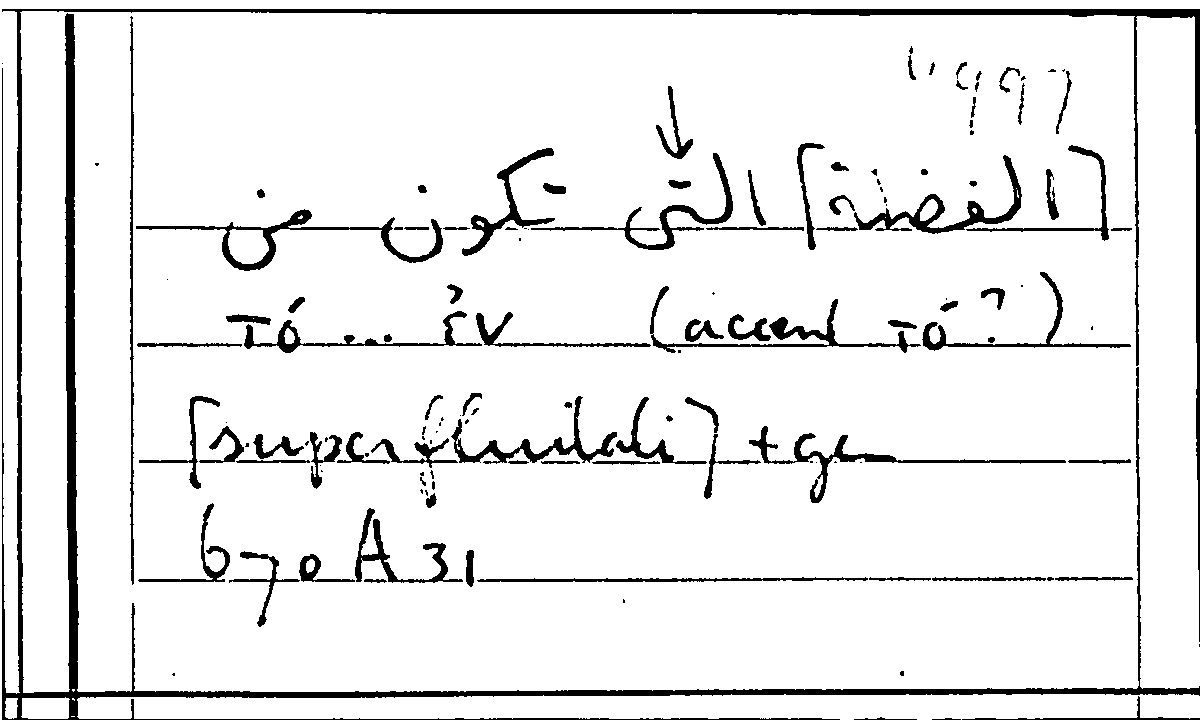 997
[الفضلة] التي تكون من
τό ... ἐν (accent τό ?)
[superfluitati] + gen
670 A 31